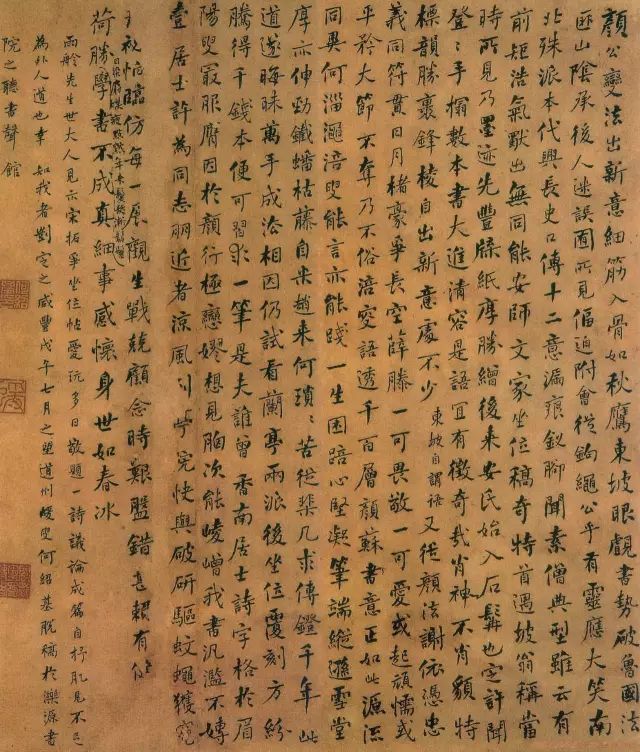 顏公變法出新意細筋入骨如秋鷹東坡眼覷書勢破魯國法
匯山陰承後人迷誤面所見偪迫附會從鉤繩公乎有靈應大笑南
北殊派本代興長史口傳十二意漏痕釵腳聞素僧典型雖云有
前矩浩氣默出無同能安師文家坐位稿奇特首遇坡翁稱當
時所見乃墨迹先豐牋紙摩勝繒後来安氏始入石髯也定許聞
登〻手搨數本書大進清容是語宜有徵奇哉肖神不肖貌特
標韻勝裹鋒棱自出新意處不少東坡自謂語又從顏法謝依憑忠
義同符貫日月楮豪爭長空薛滕一可畏敬一可愛或起頑懦或
平矜大節不奪乃不俗涪叟語透千百層顏蘇書意正如此源流
同異何淄澠涪叟能言亦能踐一生困踣心堅凝筆端縱遜雪堂
厚亦伸勁鐵蟠枯藤自米趙来何瑣〻苦從棐几求傳鐙千年此
道遂晦昧萬手成法相因仍試看蘭亭兩派後坐位覆刻方紛
騰得千錢本便可習求一筆是夫誰曾香南居士詩字格於眉
陽叟最服膺因於顏行極戀嫪想見胸次能崚嶒我書汎濫不專
壹居士許為同志朋近者涼風快與破研驅蚊蠅獲窺
秘惜臨仿每一展觀生戰兢顧念時艱盤錯甚賴有
荷勝學書不成真細事感懷身世如春冰
雨舲先生世大人見示宋拓爭坐位帖愛玩多日敬題一詩議論成篇自抒肊見不足
為外人道也幸如我者劉之咸豐戊午七月之望道州蝯叟何紹基脫稿於濼源書
院之聽書聲館